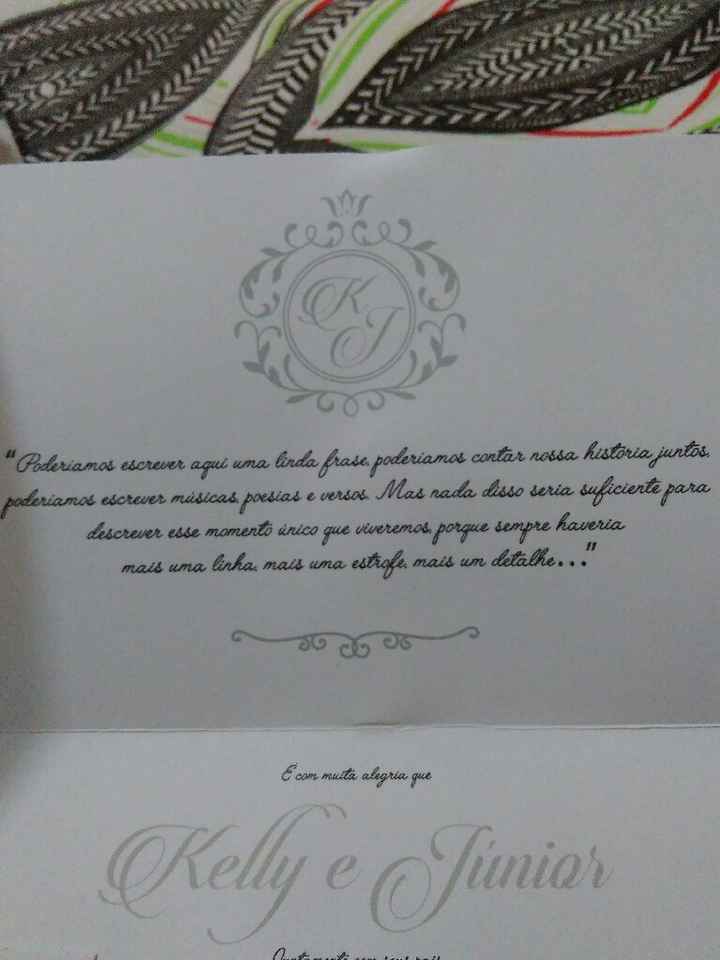 K
J
"Poderiamos escrever aqui uma linda frase, poderiamos contar nossa história juntos,
poderiamos escrever músicas, poesias e versos. Mas nada disso seria suficiente para
descrever esse momento único que viveremos, porque sempre haveria
mais uma linha, mais uma estrofe, mais um detalhe..."
É com muita alegria que
Kelly e Júnior